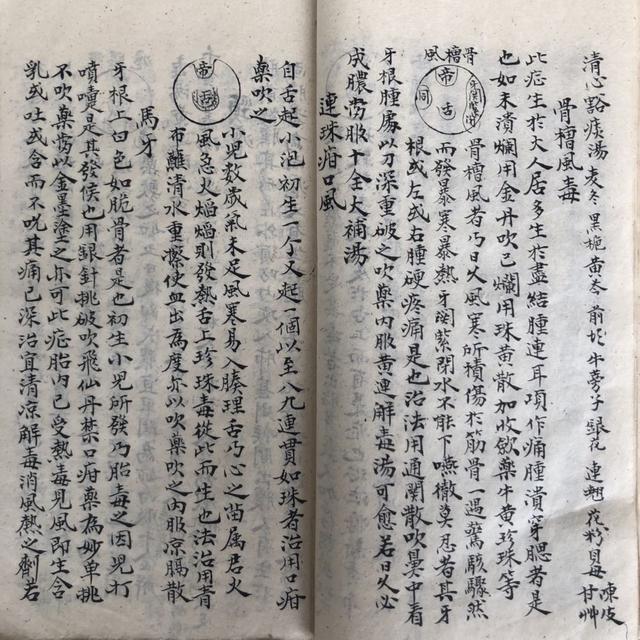 清心豁痰湯 麦冬 黑梔 黄芩 前胡 牛蒡子 銀花 連翹 花粉 貝母 陳皮 甘艸
骨槽風毒
此症生於大人居多生於盡結腫連耳項作痛腫潰穿腮者是
也如未潰爛用金丹吹已爛用珠黄散加收飲藥牛黄珍珠等
骨槽風
帝舌
骨槽風者乃日久風寒所積傷於筋骨一遇驚駭驟然
而發暴寒暴熱牙関緊閉水不能下嚥徹莫忍者其牙
根或左或右腫硬疼痛是也治法用通関散吹𤾫中看
牙根腫處以刀深重破之吹藥内服黄連解毒湯可愈若日久必
成膿當服十全大補湯
連珠疳口風
自舌起小泡初生一个又起一個以至八九連貫如珠者治用口疳
藥吹之
帝舌
小児数歲氣未足風寒易入腠理舌乃心之苗属君火
風急火煽煽則發熱舌上珍珠毒從此而生也法治用青
布蘸清水重擦使血出為度亦以吹藥吹之内服凉膈散
馬牙
牙根上白色如脆骨者是也初生小児所發乃胎毒之因見打
噴嚏是其發候也用銀針挑破吹飛仙丹禁口疳藥為妙单挑
不吹藥當以金墨塗之亦可此症胎内已受熱毒見風即生含
乳或吐或含而不吮其痛已深治宜清凉解毒消風熱之劑若